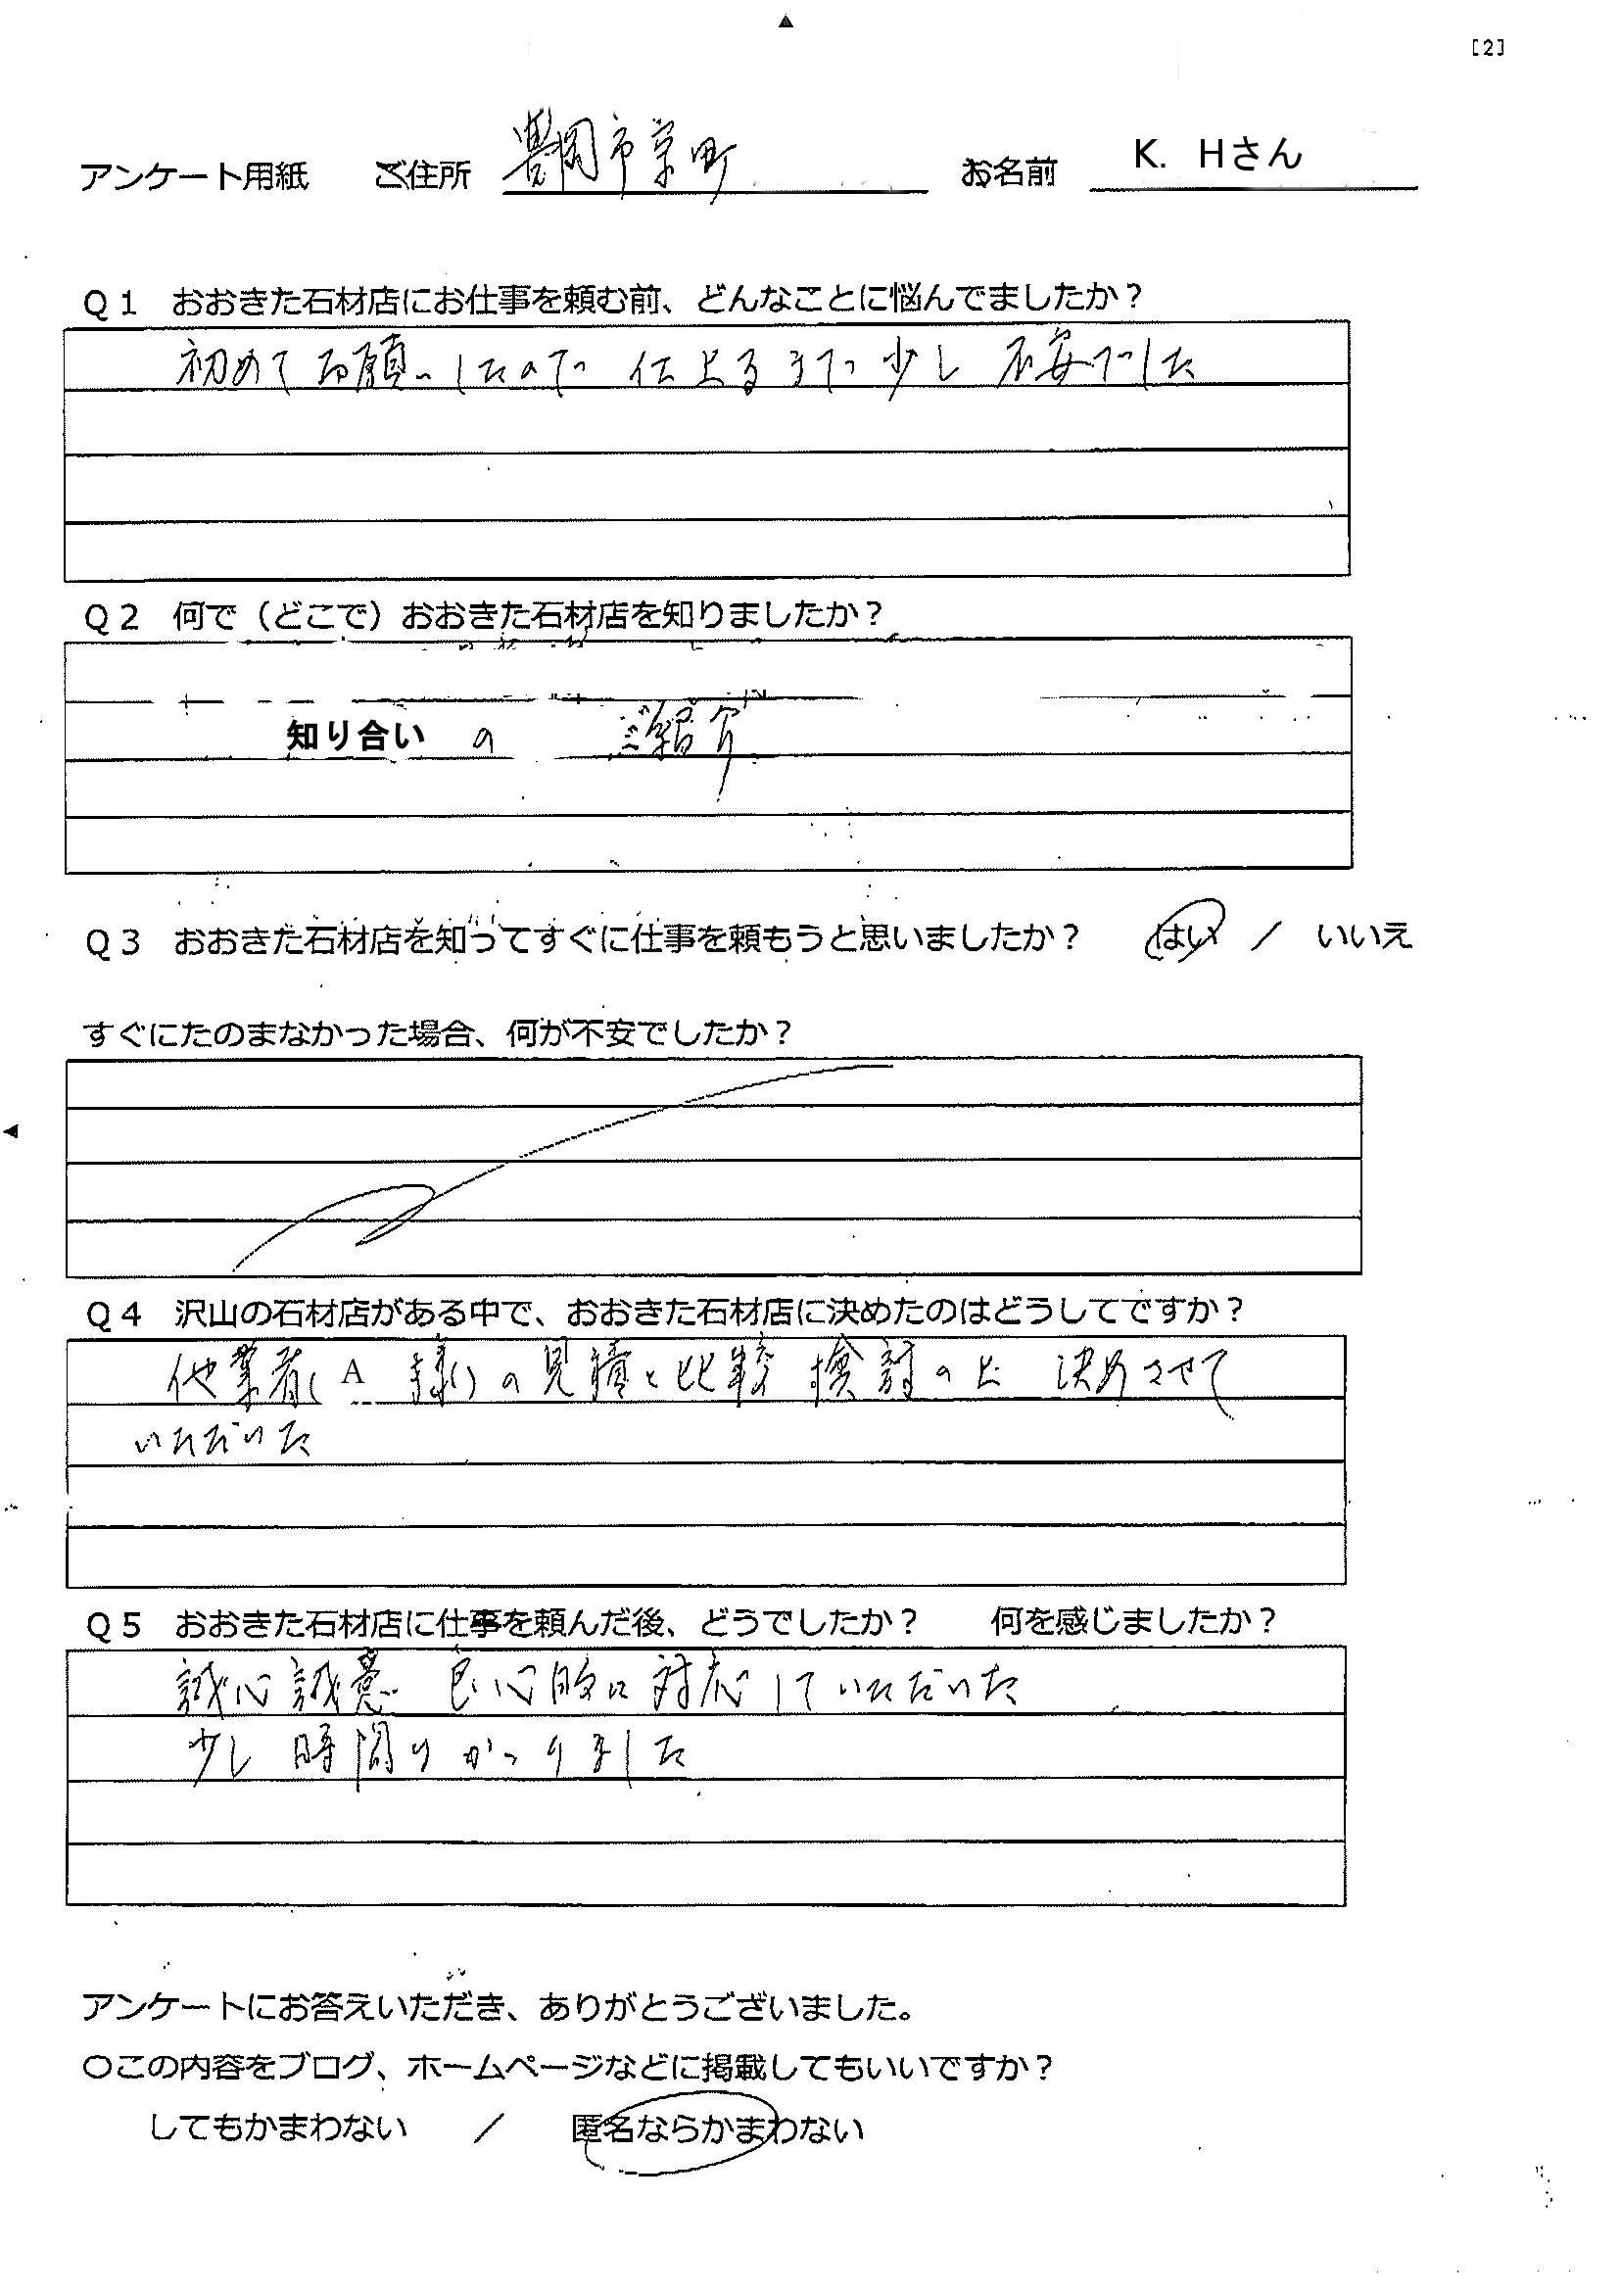 [2]
アンケート用紙 ご住所 豊岡市栄町 お名前 K. Hさん
Q1 おおきた石材店にお仕事を頼む前、どんなことに悩んでましたか？
初めてお願いしたので 仕上るまで 少し 不安でした
Q2 何で（どこで）おおきた石材店を知りましたか？
知り合い の ご紹介
Q3 おおきた石材店を知ってすぐに仕事を頼もうと思いましたか？ はい ／ いいえ
すぐにたのまなかった場合、何が不安でしたか？
Q4 沢山の石材店がある中で、おおきた石材店に決めたのはどうしてですか？
他業者(A 様)の見積と比較 検討の上 決めさせて
いただいた
Q5 おおきた石材店に仕事を頼んだ後、どうでしたか？ 何を感じましたか？
誠心誠意 良心的に対応していただいた
少し 時間はかかりました
アンケートにお答えいただき、ありがとうございました。
〇この内容をブログ、ホームページなどに掲載してもいいですか？
してもかまわない ／ 匿名ならかまわない